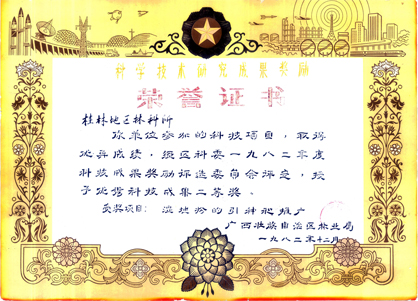 科学技术研究成果奖励
荣誉证书
桂林地区林科所
你单位参加的科技项目，取得
优异成绩，经区科委一九八二年度
科技成果奖励评选委员会评定，授
予优秀科技成果二等奖。
受奖项目： 的引种 推广
广西壮族自治区林业局
一九八二年十二月